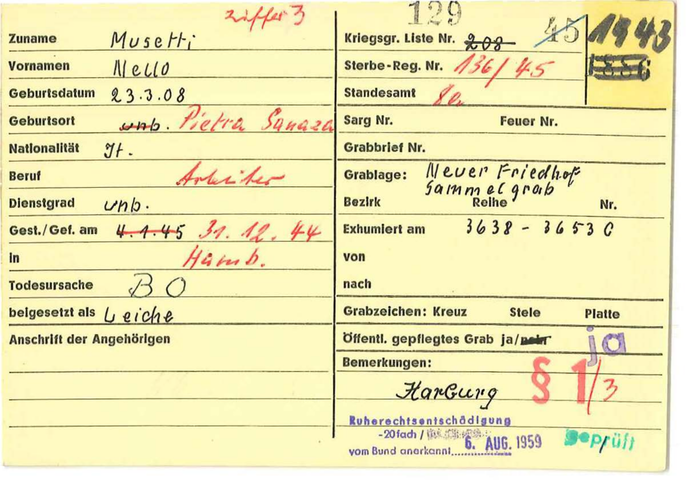 ziffer 3
Zuname Musetti
Vornamen Nello
Geburtsdatum 23.3.08
Geburtsort unb. Pietra Sanaza
Nationalität It.
Beruf Arbeiter
Dienstgrad unb.
Gest./Gef. am 4.1.45 31.12.44
in Hamb.
Todesursache BO
beigesetzt als Leiche
Anschrift der Angehörigen
129
45 1943
Kriegsgr. Liste Nr. 208
Sterbe-Reg. Nr. 136/45
Standesamt
Sarg Nr. Feuer Nr.
Grabbrief Nr.
Grablage: Neuer Friedhof
Sammelgrab
Bezirk Reihe Nr.
Exhumiert am 3638 - 3653 C
von
nach
Grabzeichen: Kreuz Stele Platte
Öffentl. gepflegtes Grab ja/nein ja
Bemerkungen:
§ 1/3
Harburg
Ruherechtsentschädigung
-20fach /
vom Bund anerkannt 6. AUG. 1959
geprüft